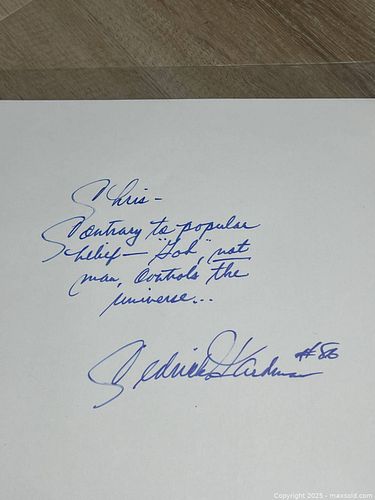 Chris-
Contrary to popular
belief- "God", not
man, controls the
universe...
Cedrick Hardman #86
Copyright 2025 - maxsold.com